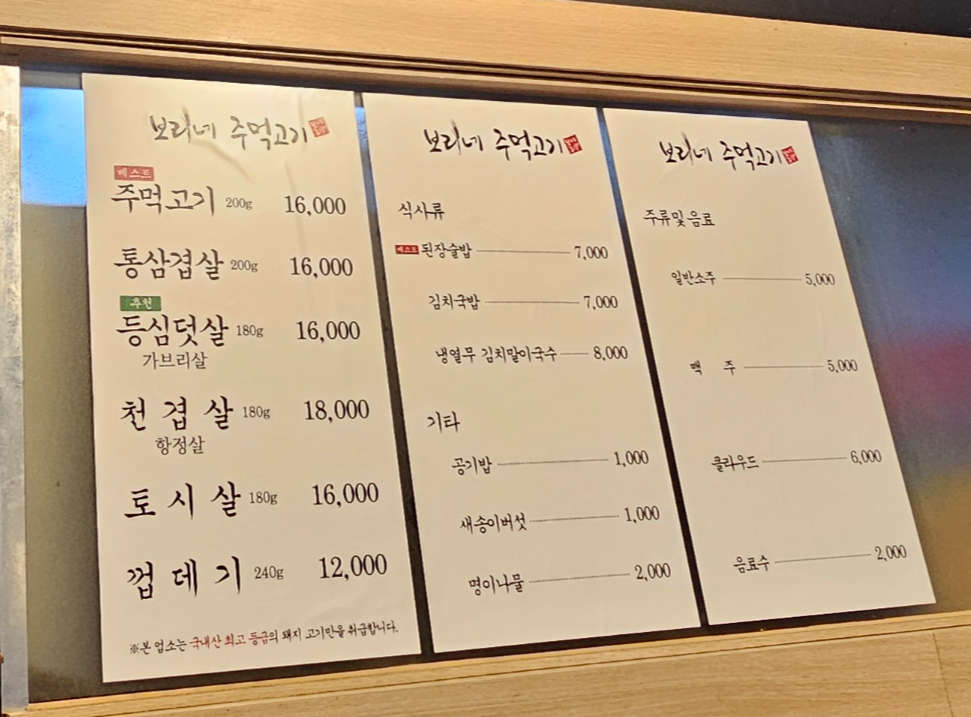 보리네 주먹고기
베스트
주먹고기 200g 16,000
통삼겹살 200g 16,000
추천
등심덧살 180g 16,000
가브리살
천겹살 180g 18,000
항정살
토시살 180g 16,000
껍데기 240g 12,000
※본 업소는 국내산 최고 등급의 돼지 고기만을 취급합니다.
보리네 주먹고기
식사류
베스트 된장술밥 7,000
김치국밥 7,000
냉열무 김치말이국수 8,000
기타
공기밥 1,000
새송이버섯 1,000
명이나물 2,000
보리네 주먹고기
주류및음료
일반소주 5,000
맥 주 5,000
클라우드 6,000
음료수 2,000